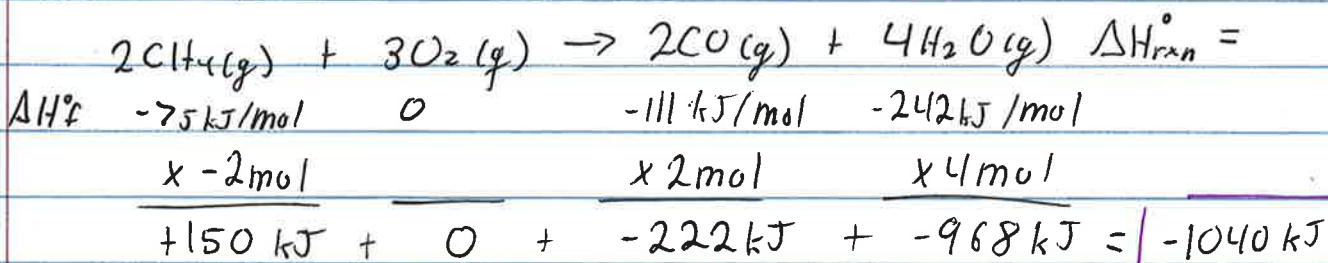 2CH₄(g) + 3O₂(g) → 2CO(g) + 4H₂O(g) ΔH°rxn =
ΔH°f -75 kJ/mol 0 -111 kJ/mol -242 kJ/mol
x -2mol x 2mol x 4mol
+150 kJ + 0 + -222kJ + -968kJ = -1040 kJ